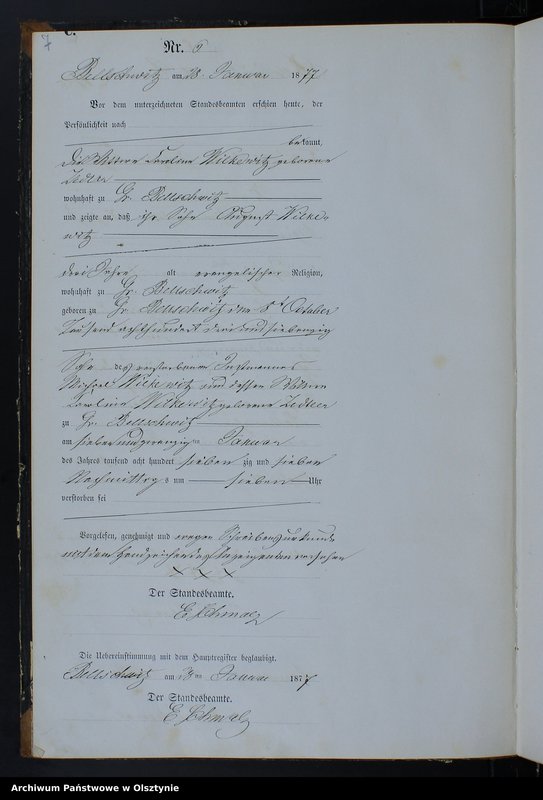 7
C.
Nr. 6
Bellschwitz am 28. Januar 1877
Vor dem unterzeichneten Standesbeamten erschien heute, der
Persönlichkeit nach
bekannt,
die Wittwe Caroline Wilkewitz geborene
wohnhaft zu Gr. Bellschwitz
und zeigte an, daß ihr Sohn August Wilke-
witz
drei Jahre alt evangelischer Religion,
wohnhaft zu Gr. Bellschwitz
geboren zu Gr. Bellschwitz den October
tausend achthundert drei und siebenzig
Sohn des verstorbenen Instmannes
Michael Wilkewitz und dessen Wittwe
Caroline Wilkewitz geborene
zu Gr. Bellschwitz
am sieben und zwanzigten Januar
des Jahres tausend acht hundert sieben zig und sieben
Nachmittags um sieben Uhr
verstorben sei
Vorgelesen, genehmigt und wegen Schreibensunkunde
mit dem Handzeichen der Anzeigenden versehen
X X X
Der Standesbeamte.
Die Uebereinstimmung mit dem Hauptregister beglaubigt.
Bellschwitz am 28ten Januar 1877
Der Standesbeamte.
Archiwum Państwowe w Olsztynie